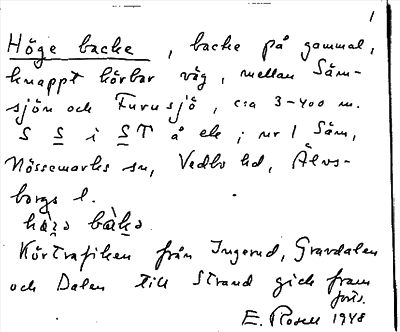 1
Höge backe, backe på gammal,
knappt körbar väg, mellan Säm-
sjön och Furusjö, c:a 3-400 m.
S S i ST å ek; nr 1 Säm,
Nössemarks sn, Vedbo hd, Älvs-
borgs l.
Körtrafiken från Ingerud, Gravdalen
och Dalen till Strand gick fram
förr.
E. Rosell 1948